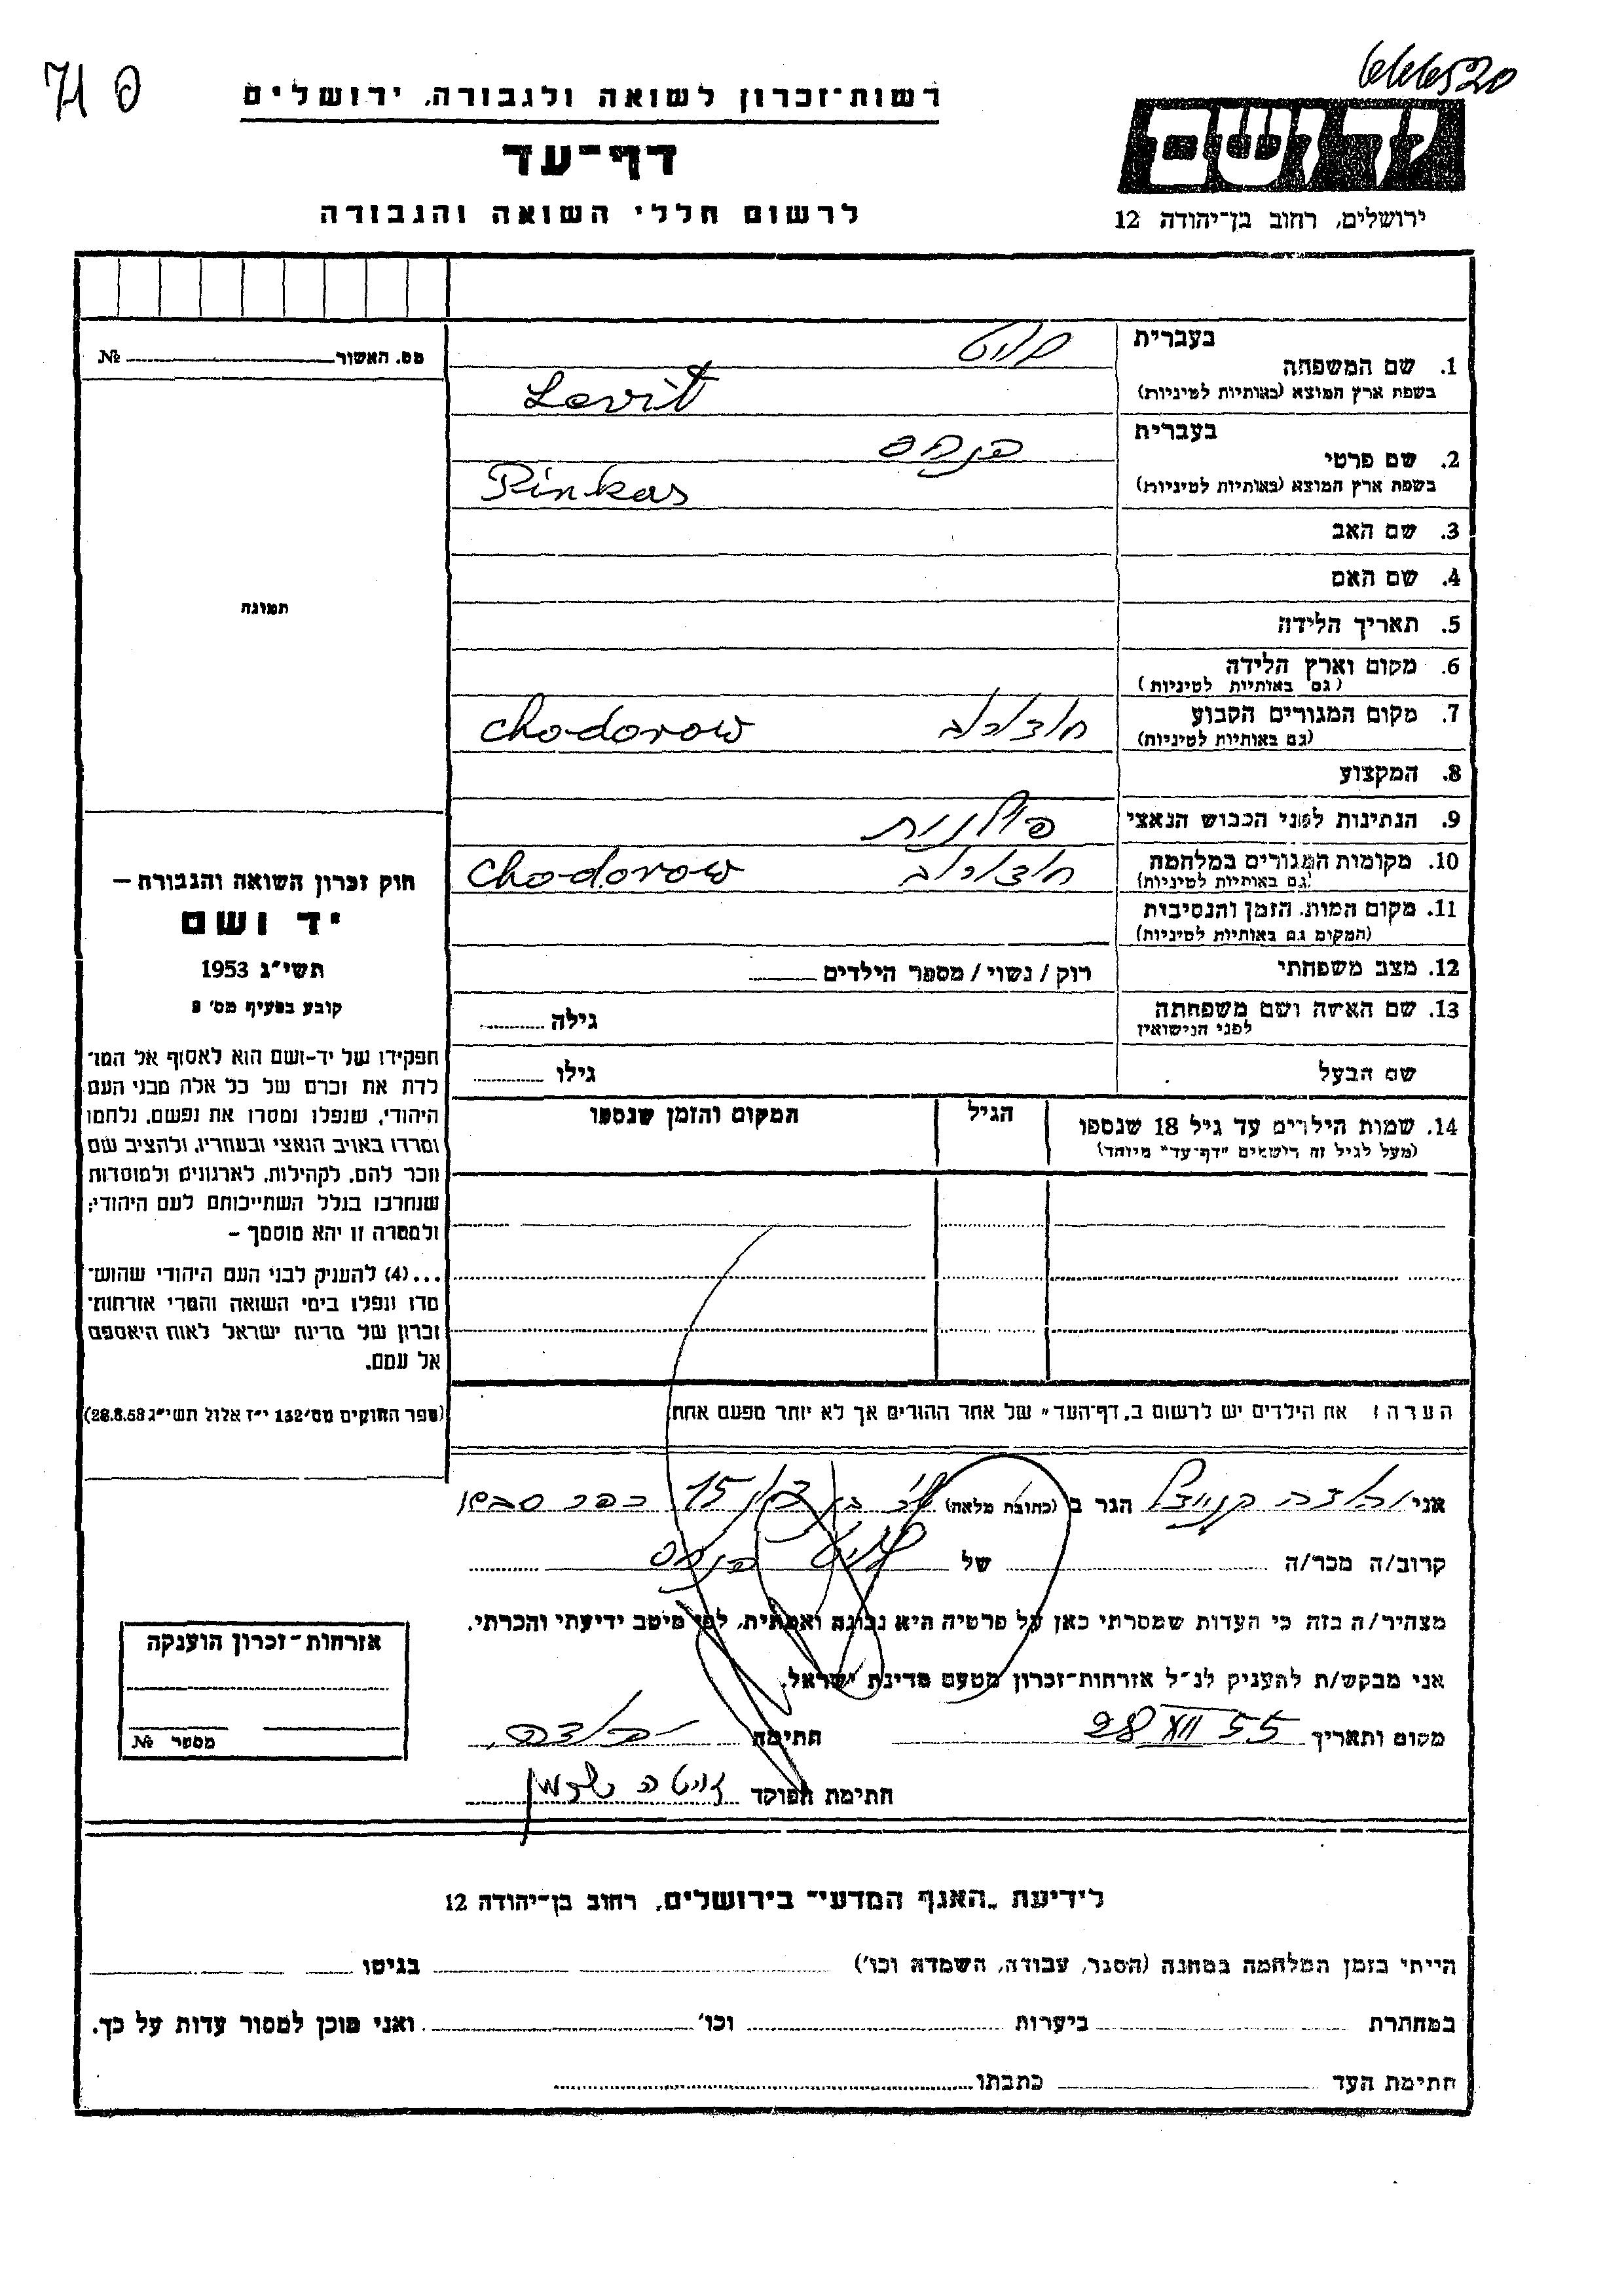 666520
רשות־זכרון לשואה ולגבורה, ירושלים
דף־עד
לרשום חללי השואה והגבורה
ידושם
ירושלים, רחוב בן־יהודה 12
מס. האשור № 
בעברית
1. שם המשפחה
בשפת ארץ המוצא (באותיות לטיניות) Levit
בעברית
2. שם פרטי פנחס
בשפת ארץ המוצא (באותיות לטיניות) Pinkas
3. שם האב
4. שם האם
תמונה
5. תאריך הלידה
6. מקום וארץ הלידה
(גם באותיות לטיניות)
7. מקום המגורים הקבוע Chodorow
(גם באותיות לטיניות)
8. המקצוע
9. הנתינות לפני הכבוש הנאצי פולנית
10. מקומות המגורים במלחמה Chodorow
(גם באותיות לטיניות)
11. מקום המות, הזמן והנסיבות
(המקום גם באותיות לטיניות)
12. מצב משפחתי רוק / נשוי / מספר הילדים
13. שם האשה ושם משפחתה גילה
לפני הנישואין
שם הבעל גילו
14. שמות הילדים עד גיל 18 שנספו הגיל המקום והזמן שנספו
(מעל לגיל זה רושמים "דף־עד" מיוחד)
חוק זכרון השואה והגבורה –
יד ושם
תשי"ג 1953
קובע בסעיף מס' 2
תפקידו של יד-ושם הוא לאסוף אל המו־
לדת את זכרם של כל אלה מבני העם
היהודי, שנפלו ומסרו את נפשם, נלחמו
ומרדו באויב הנאצי ובעוזריו, ולהציב שם
וזכר להם, לקהילות, לארגונים ולמוסדות
שנחרבו בגלל השתייכותם לעם היהודי;
ולמטרה זו יהא מוסמך –
...(4) להעניק לבני העם היהודי שהוש־
מדו ונפלו בימי השואה והמרי אזרחות־
זכרון של מדינת ישראל לאות היאספם
אל עמם.
(ספר החוקים מס' 132 י"ז אלול תשי"ג 28.8.53)
הערה: את הילדים יש לרשום ב"דף־העד" של אחד ההורים אך לא יותר מפעם אחת
אני הגר ב (כתובת מלאה) 15 כפר סבא
קרוב/ה מכר/ה של פנחס
מצהיר/ה בזה כי העדות שמסרתי כאן על פרטיה היא נכונה ואמתית, לפי מיטב ידיעתי והכרתי.
אני מבקש/ת להעניק לנ"ל אזרחות־זכרון מטעם מדינת ישראל.
מקום ותאריך 28 XII 55 חתימה
חתימת הפוקד
אזרחות־זכרון הוענקה
מספר №
לידיעת "האגף המדעי" בירושלים, רחוב בן־יהודה 12
הייתי בזמן המלחמה במחנה (הסגר, עבודה, השמדה וכו') בגיטו
במחתרת ביערות וכו' ואני מוכן למסור עדות על כך.
חתימת העד כתבתו